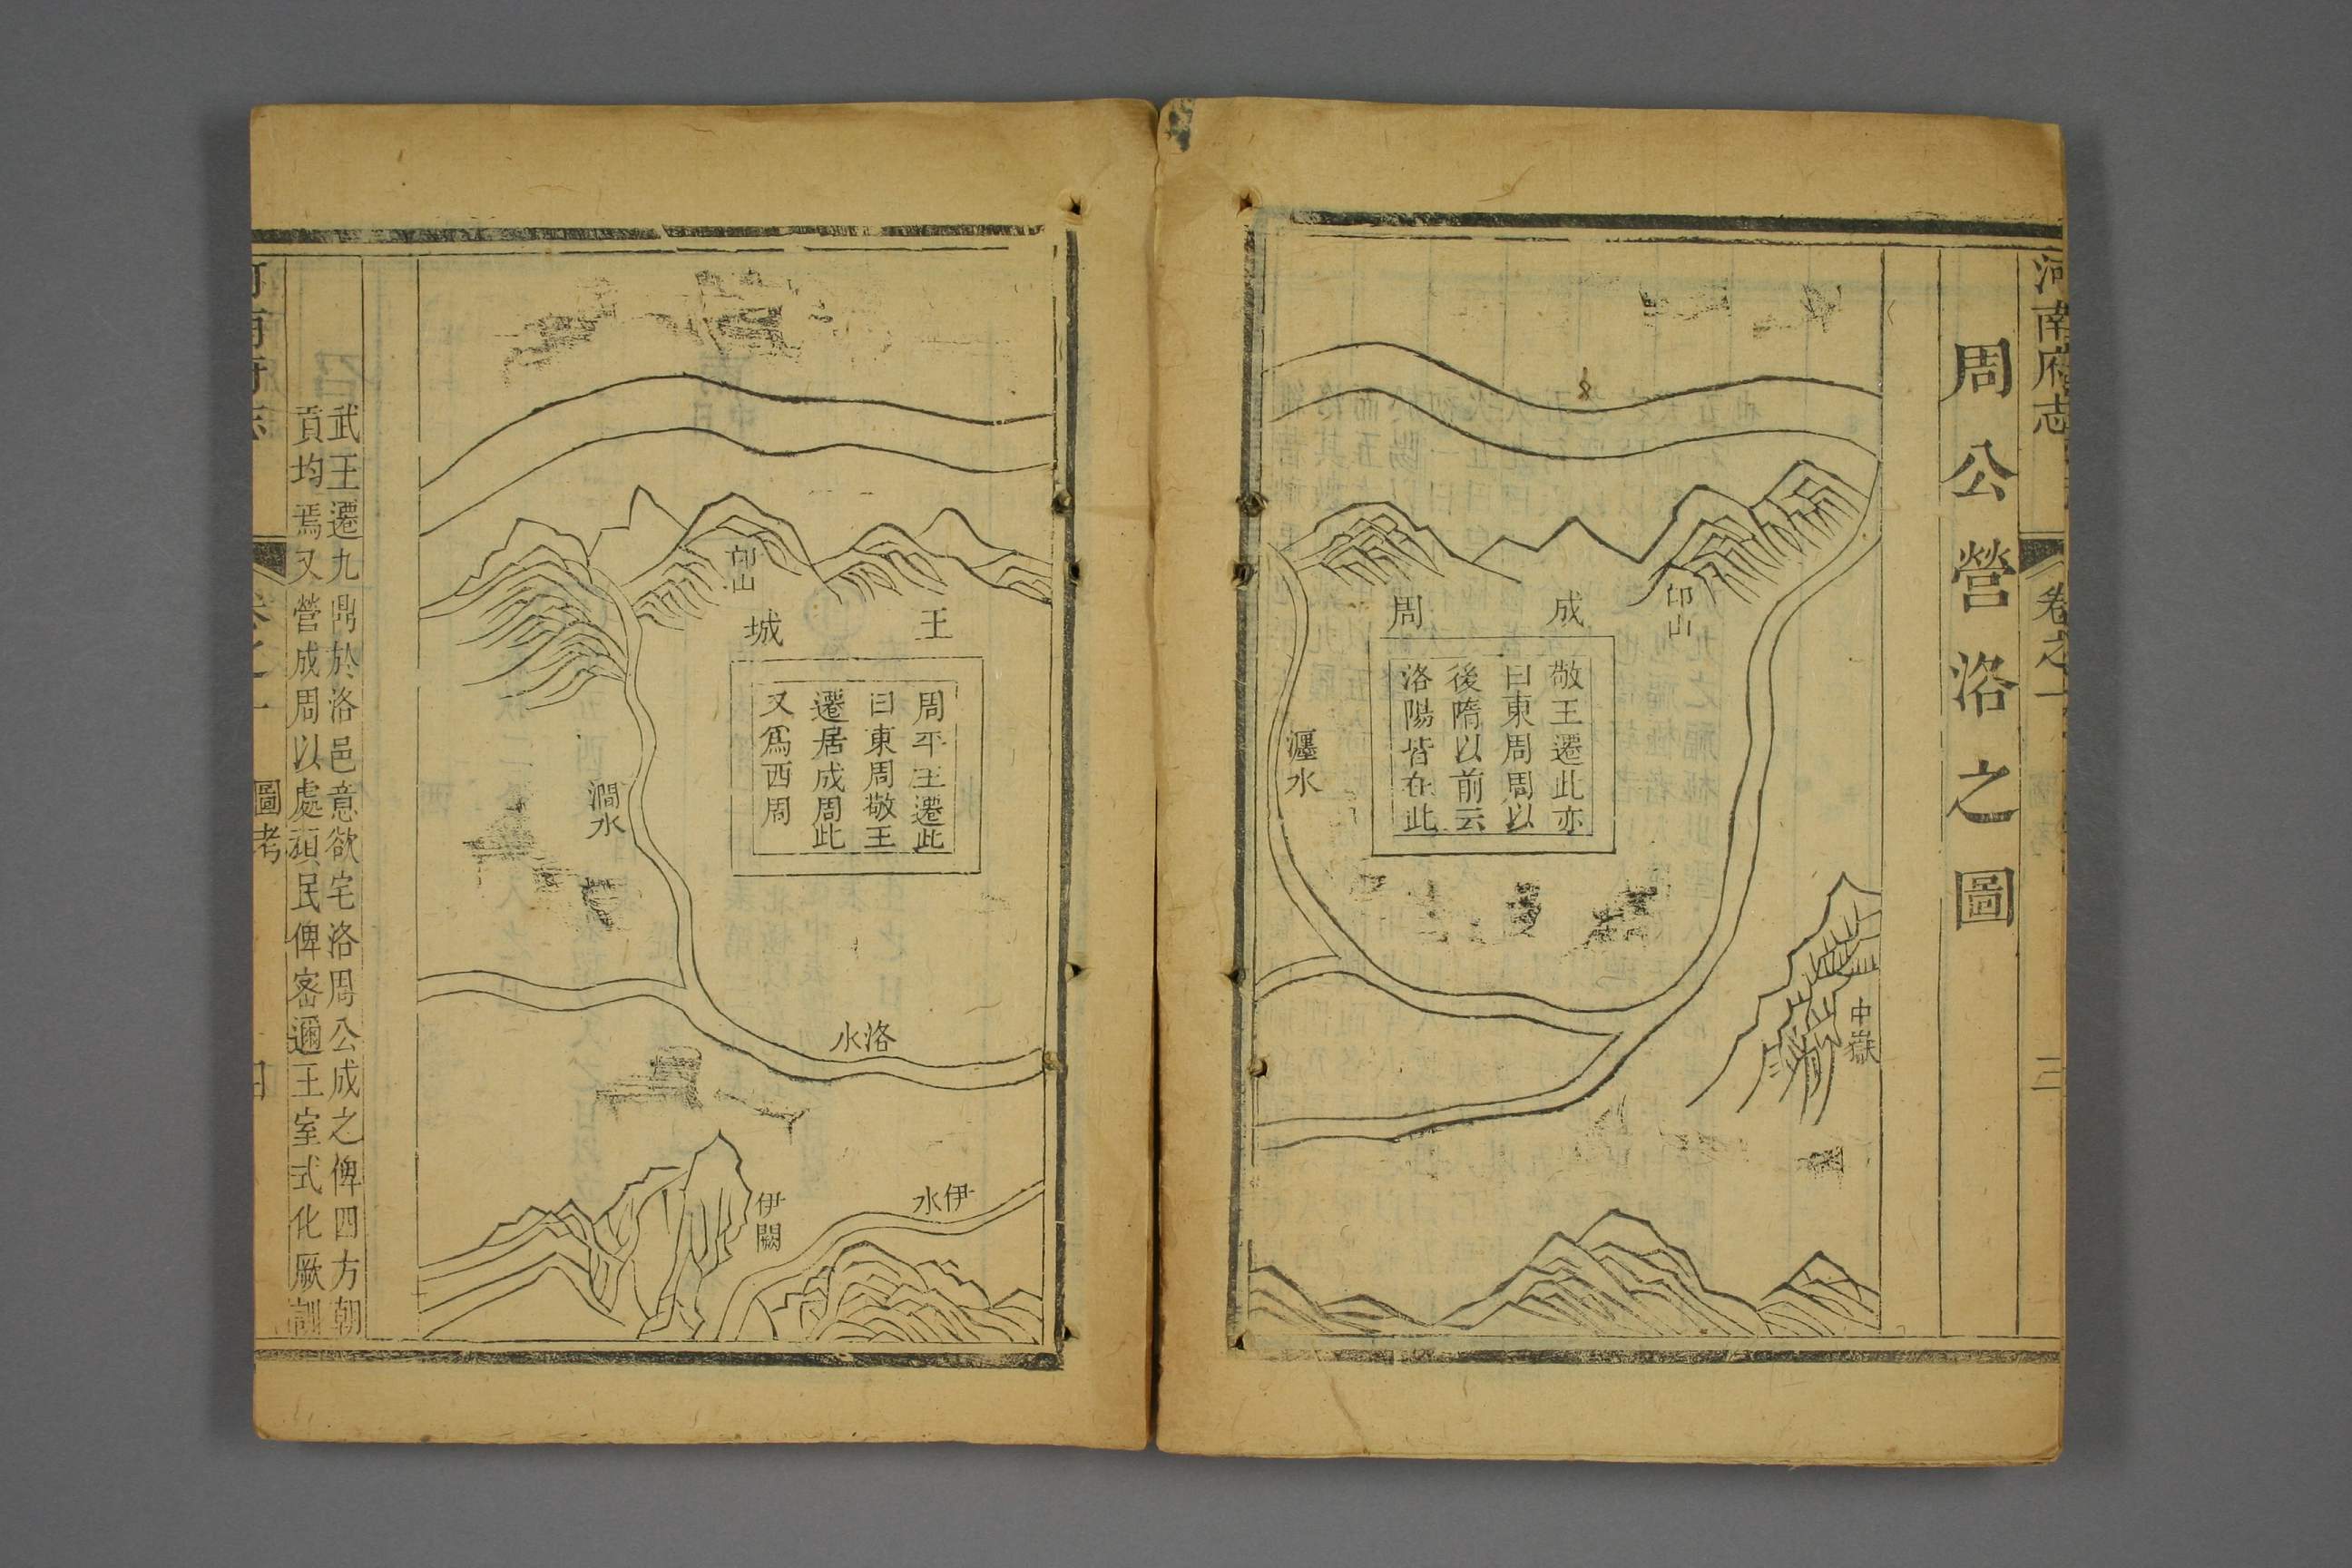 河南府志
卷之一
三
周公營洛之圖
中嶽
邙山
成周
敬王遷此亦
曰東周周以
後隋以前云
洛陽皆在此
瀍水
王城
周平王遷此
曰東周敬王
遷居成周此
又爲西周
邙山
洛水
伊水
伊闕
澗水
武王遷九鼎於洛邑意欲宅洛周公成之俾四方朝
貢均焉又營成周以處頑民俾密邇王室式化厥訓
圖考